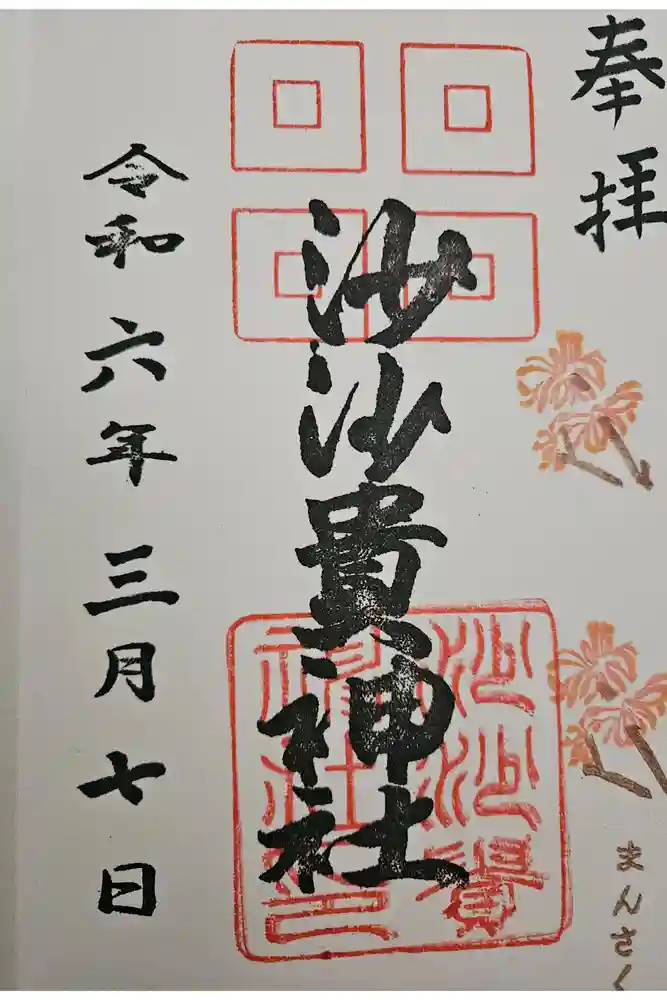 奉拝
沙沙貴神社
沙沙貴
神社之印
令和六年三月七日
まんさく